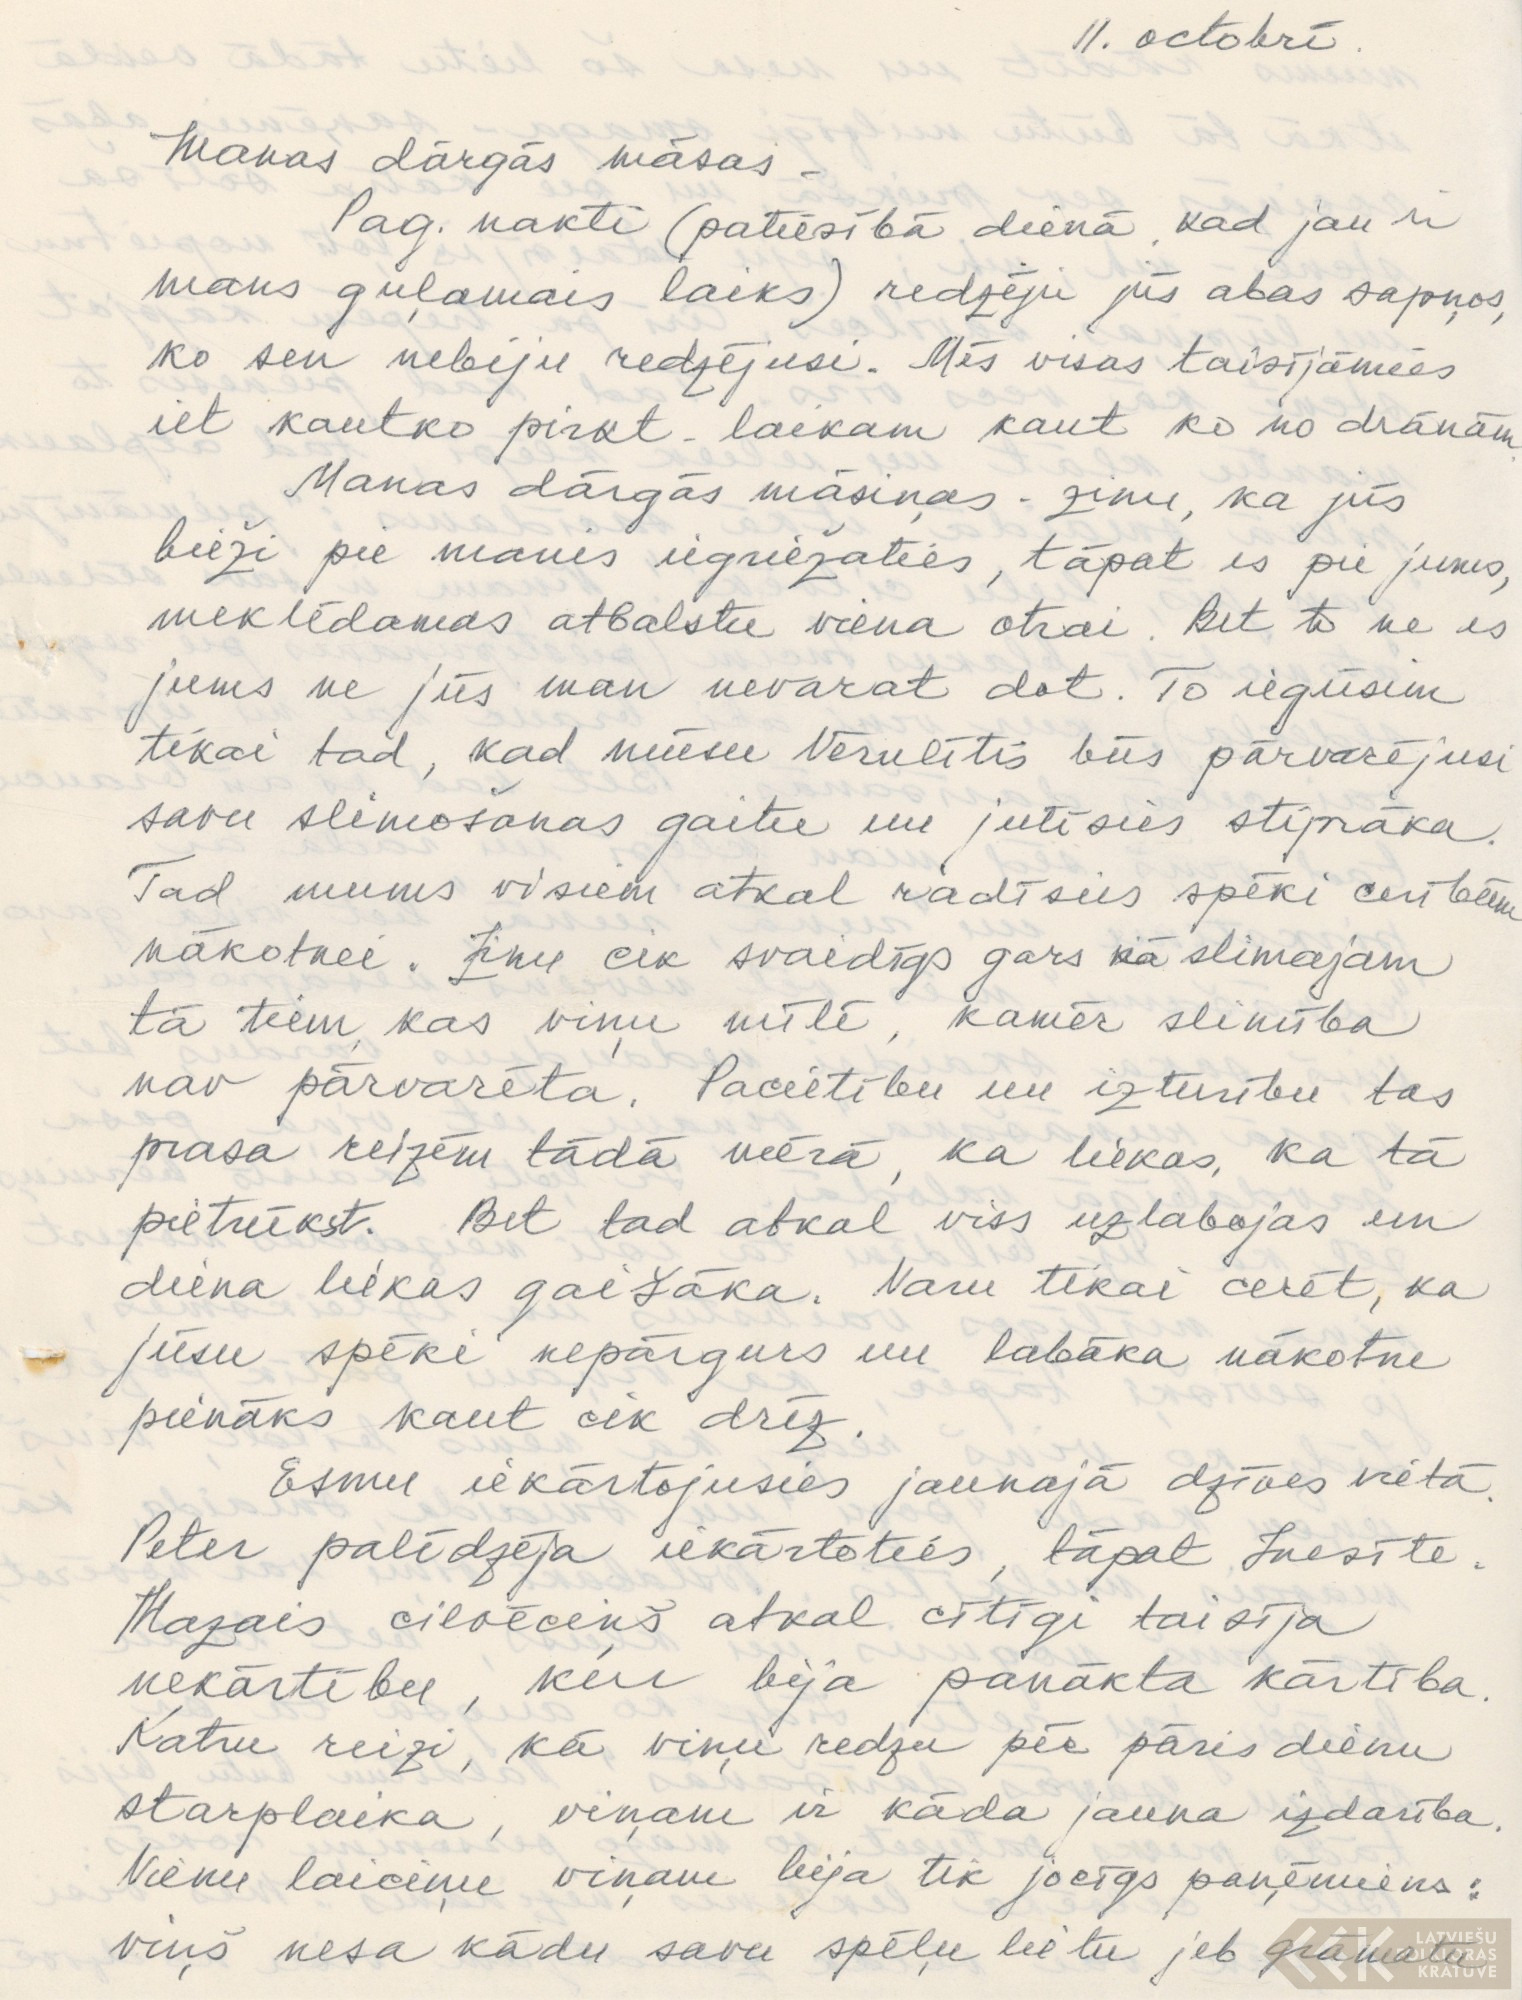 11. octobrī.
Manas dārgās māsas -
Pag. naktī (patiesībā dienā, kad jau ir
mans guļamais laiks) redzēju jūs abas sapņos,
ko sen nebiju redzējusi. Mēs visas taisījāmies
iet kautko pirkt - laikam kaut ko no drānām.
Manas dārgās māsiņas - zinu, ka jūs
bieži pie manis iegriežaties, tāpat es pie jums,
meklēdamas atbalstu viena otrai. Bet to ne es
jums ne jūs man nevarat dot. To iegūsim
tikai tad, kad mūsu Vērulītis būs pārvarējusi
savu slimošanas gaitu un jutīsies stiprāka.
Tad mums visiem atkal radīsies spēki cerībām
nākotnei. Zinu cik svaidīgs gars kā slimajam
tā tiem, kas viņu mīlē, kamēr slimība
nav pārvarēta. Pacietību un izturību tas
prasa reizēm tādā mērā, ka liekas, ka tā
pietrūkst. Bet tad atkal viss uzlabojas un
diena liekas gaišāka. Varu tikai cerēt, ka
jūsu spēki nepārgurs un labāka nākotne
pienāks kaut cik drīz.
Esmu iekārtojusies jaunajā dzīves vietā.
Peter palīdzēja iekārtoties, tāpat Inesīte.
Mazais cilvēciņš atkal cītīgi taisīja
nekārtību, kur bija panākta kārtība.
Katru reizi, kā viņu redzu pēc pāris dienu
starplaika, viņam ir kāda jauna izdarība.
Vienu laiciņu viņam bija tik jocīgs paņēmiens:
viņš nesa kādu savu spēļu lietu jeb grāmatu
LATVIEŠU
DIASPORAS
KRATUVE